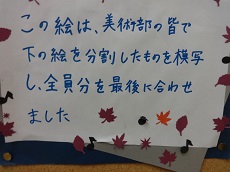 この絵は、美術部の皆で
下の絵を分割したものを模写
し、全員分を最後に合わせ
ました